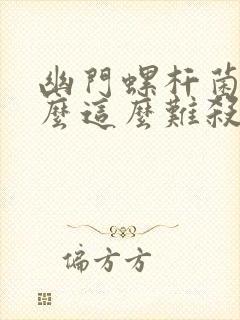 幽門螺杆菌
麼這麼難殺
偏方方